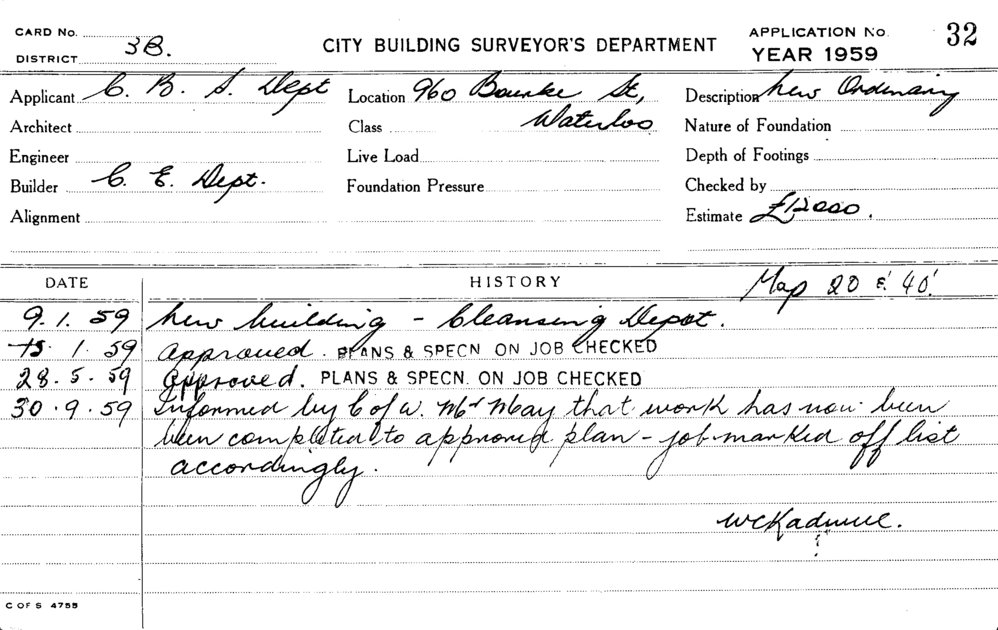 CARD No.
DISTRICT 3B.
CITY BUILDING SURVEYOR'S DEPARTMENT
APPLICATION No. 32
YEAR 1959
Applicant C. B. S. Dept Location 960 Bourke St, Description New Ordinary
Architect Class Waterloo Nature of Foundation
Engineer Live Load Depth of Footings
Builder C. E. Dept. Foundation Pressure Checked by
Alignment Estimate £12000.
DATE HISTORY Map 20 & 40'.
9. 1. 59 New building - Cleansing Depot.
15. 1. 59 Approved. PLANS & SPECN ON JOB CHECKED
28. 5. 59 Approved. PLANS & SPECN. ON JOB CHECKED
30. 9. 59 Informed by C of W. Mr May that work has now been
been completed to approved plan - job marked off list
accordingly.
C OF S 4755